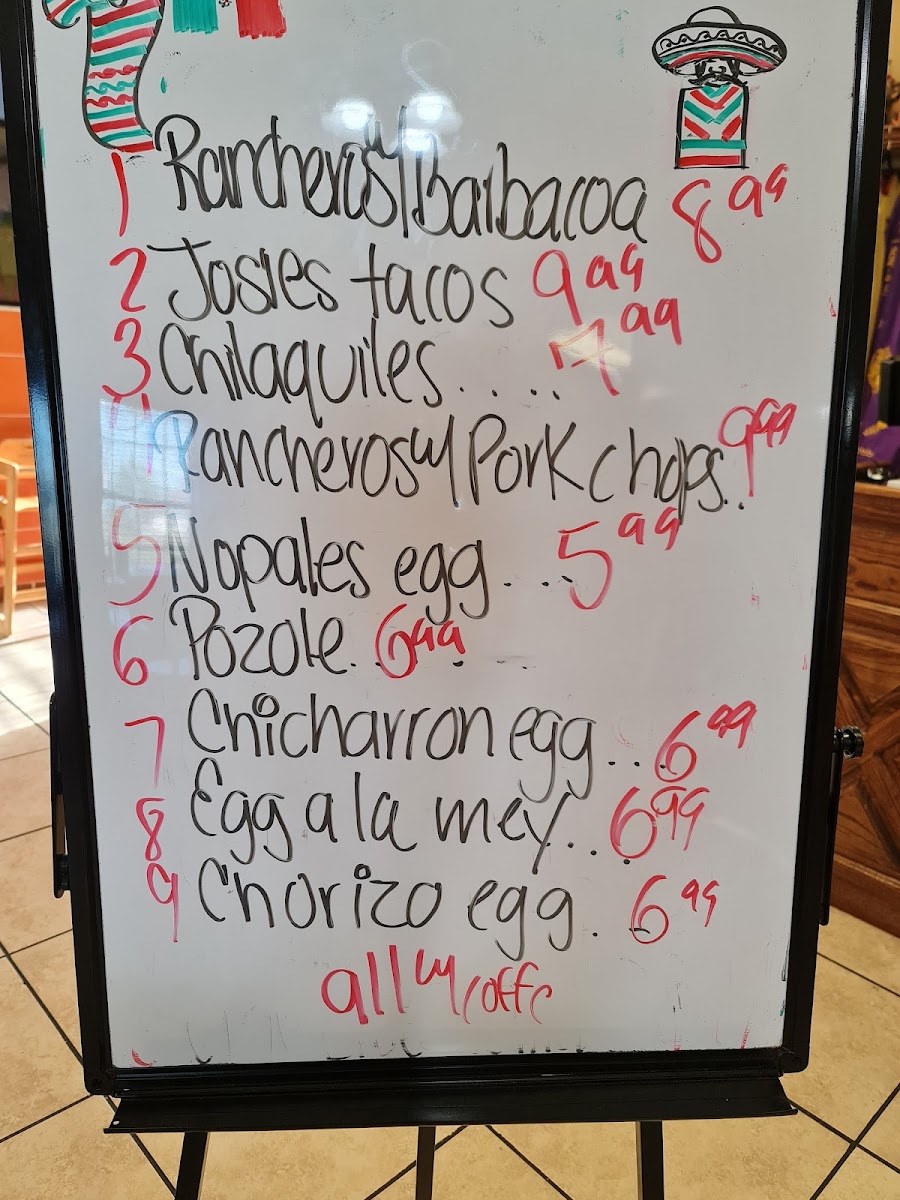 1 Rancheros w/ Barbacoa 8 99
2 Josies tacos 9 99
3 Chilaquiles.... 7 99
4 Rancheros w/ Pork chops.. 9 99
5 Nopales egg.... 5 99
6 Pozole.. 6 99
7 Chicharron egg... 6 99
8 Egg a la mex... 6 99
9 Chorizo egg.. 6 99
all w/ coffe